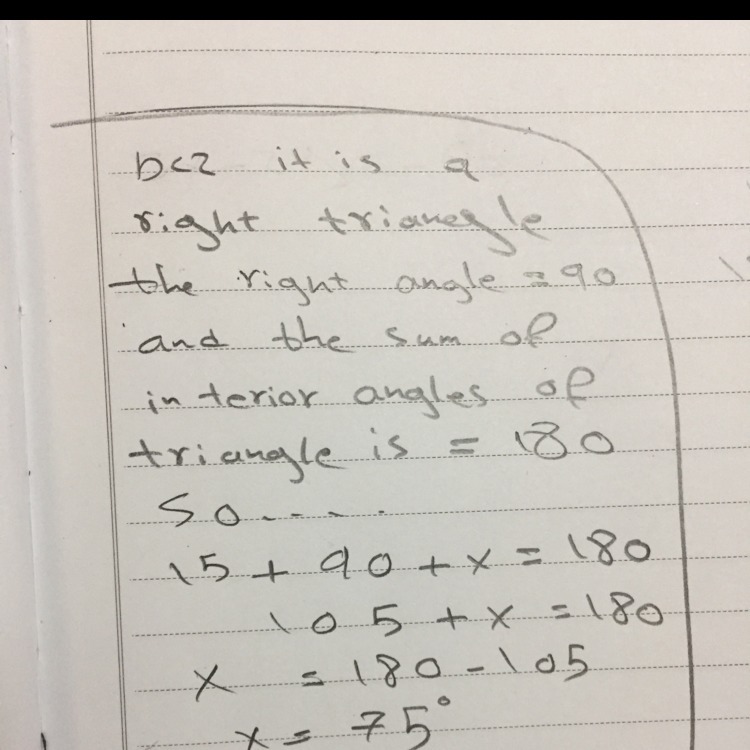 bcz it is a
right triangle
the right angle = 90
and the sum of
interior angles of
triangle is = 180
So.....
15 + 90 + x = 180
105 + x = 180
x = 180 - 105
x = 75°